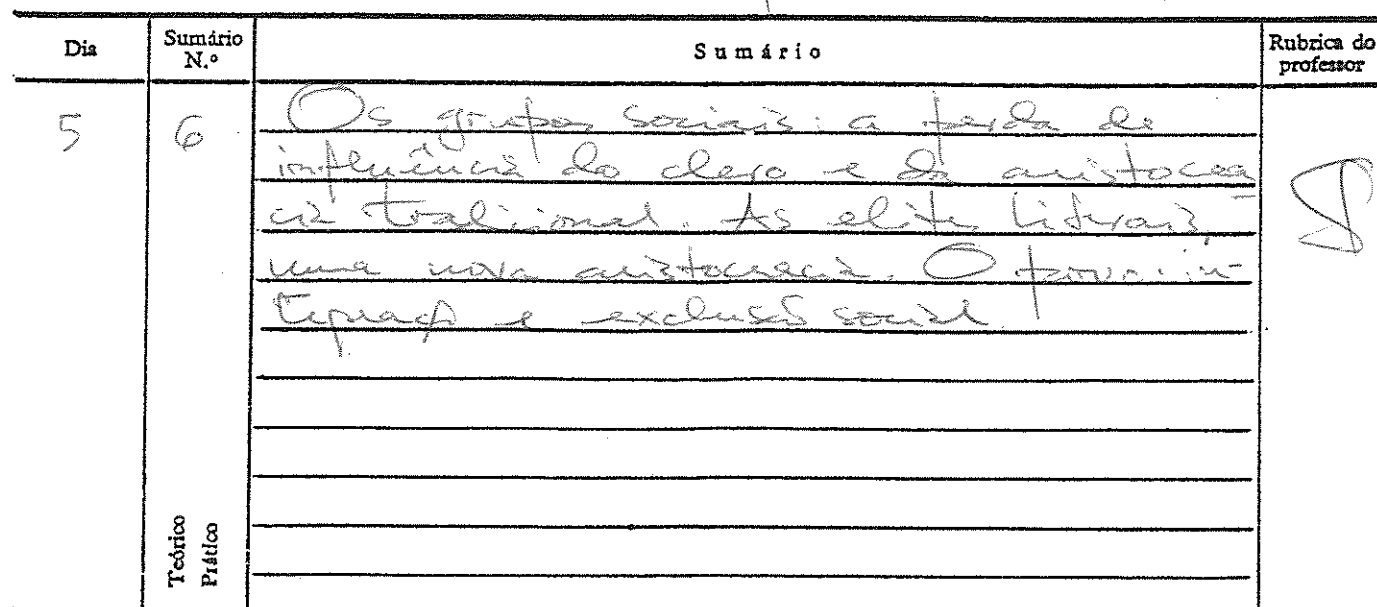 Dia
Sumário
N.º
Sumário
Rubrica do
professor
5
6
Os grupos sociais: a perda de
influência do clero e da aristocra-
cia tradicional. As elites liberais,
uma nova aristocracia. O povo: in-
tegração e exclusão social.
Teórico
Prático